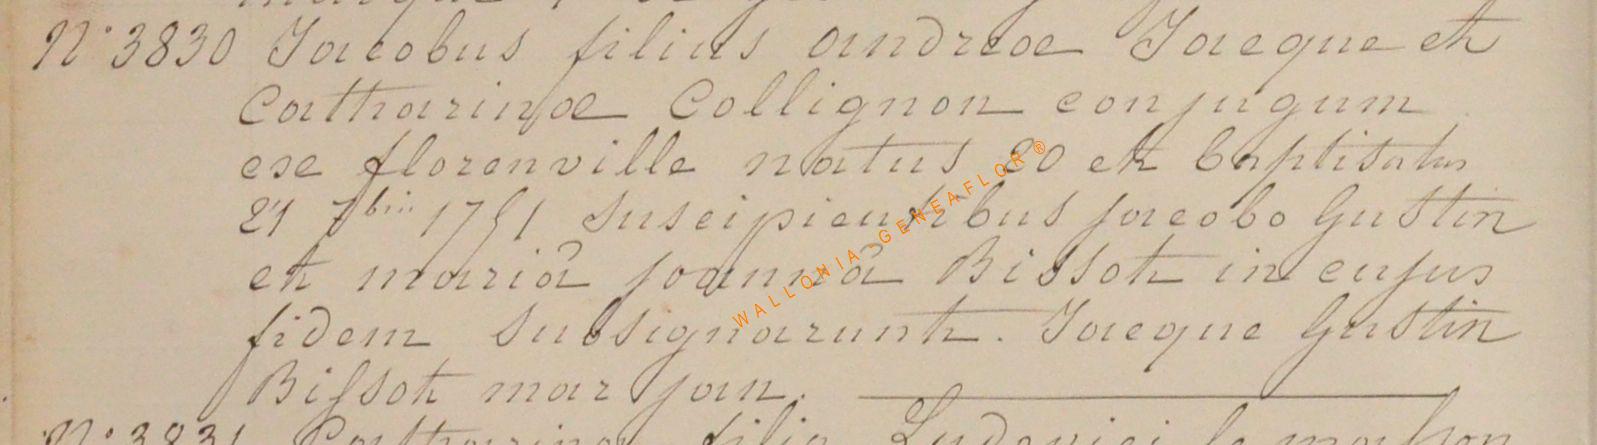 N° 3830 Jacobus filius andreae Jacque et
Catharinae Collignon conjugum
exe florenville natus 20 et baptisatus
21 7bris 1751 suscipientibus jacobo Gustin
et mariâ joannâ Bissot in cujus
fidem subsignarunt. Jacque Gustin
Bissot mar jan.
N° 3831 Catharina filia Ludovici le
WALLONIA-GENEAFLOR®